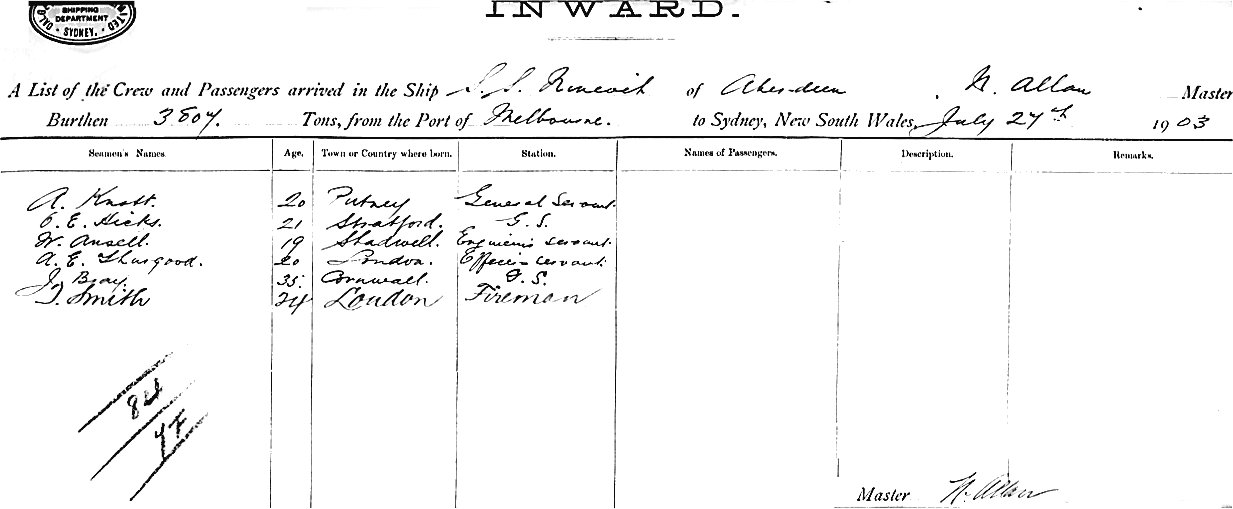 SHIPPING
DEPARTMENT
SYDNEY.
INWARD.
A List of the Crew and Passengers arrived in the Ship S.S. of Aberdeen, N. Allan Master
Burthen 3807. Tons, from the Port of Melbourne. to Sydney, New South Wales, July 27th 1903
Seamen's Names. Age. Town or Country where born. Station. Names of Passengers. Description. Remarks.
A. Knott. 20 Putney General Servant.
C. E. Hicks. 21 Stratford. G.S.
W. Ansell. 19 Shadwell. Engineer's servant.
A. E. Thurgood. 20 London. Officer's servant.
J. Bray. 35. Cornwall. G.S.
T. Smith 24 London Fireman
84
Master N. Allan